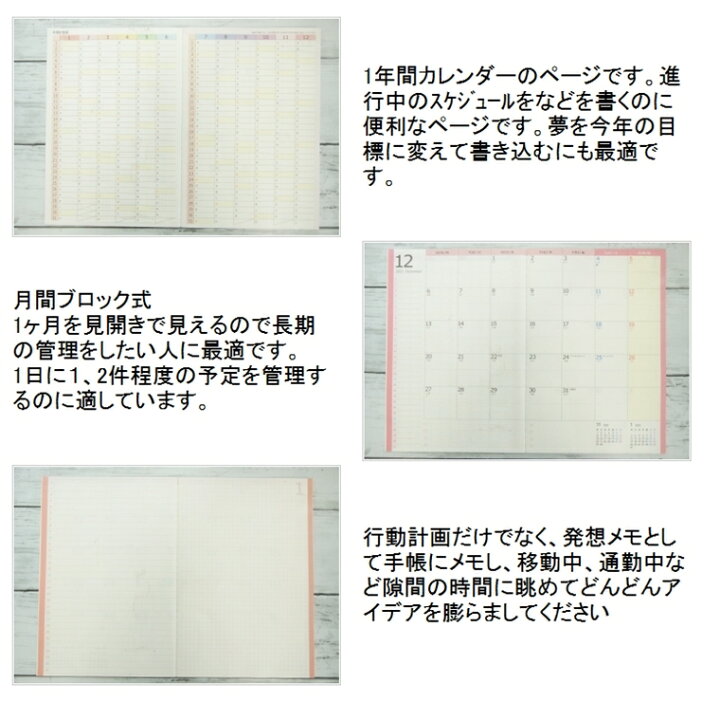 1 2 3 4 5 6
7 8 9 10 11 12
1年間カレンダーのページです。進
行中のｽｹｼﾞｭｰﾙをなどを書くのに
便利なページです。夢を今年の目
標に変えて書き込むにも最適で
す。
月間ブロック式
1ヶ月を見開きで見えるので長期
の管理をしたい人に最適です。
1日に１、2件程度の予定を管理す
るのに適しています。
12
1 2 3 4 5
6 7 8 9 10 11 12
13 14 15 16 17 18 19
20 21 22 23 24 25 26
27 28 29 30 31
1
行動計画だけでなく、発想メモとし
て手帳にメモし、移動中、通勤中な
ど隙間の時間に眺めてどんどんア
イデアを膨らましてください